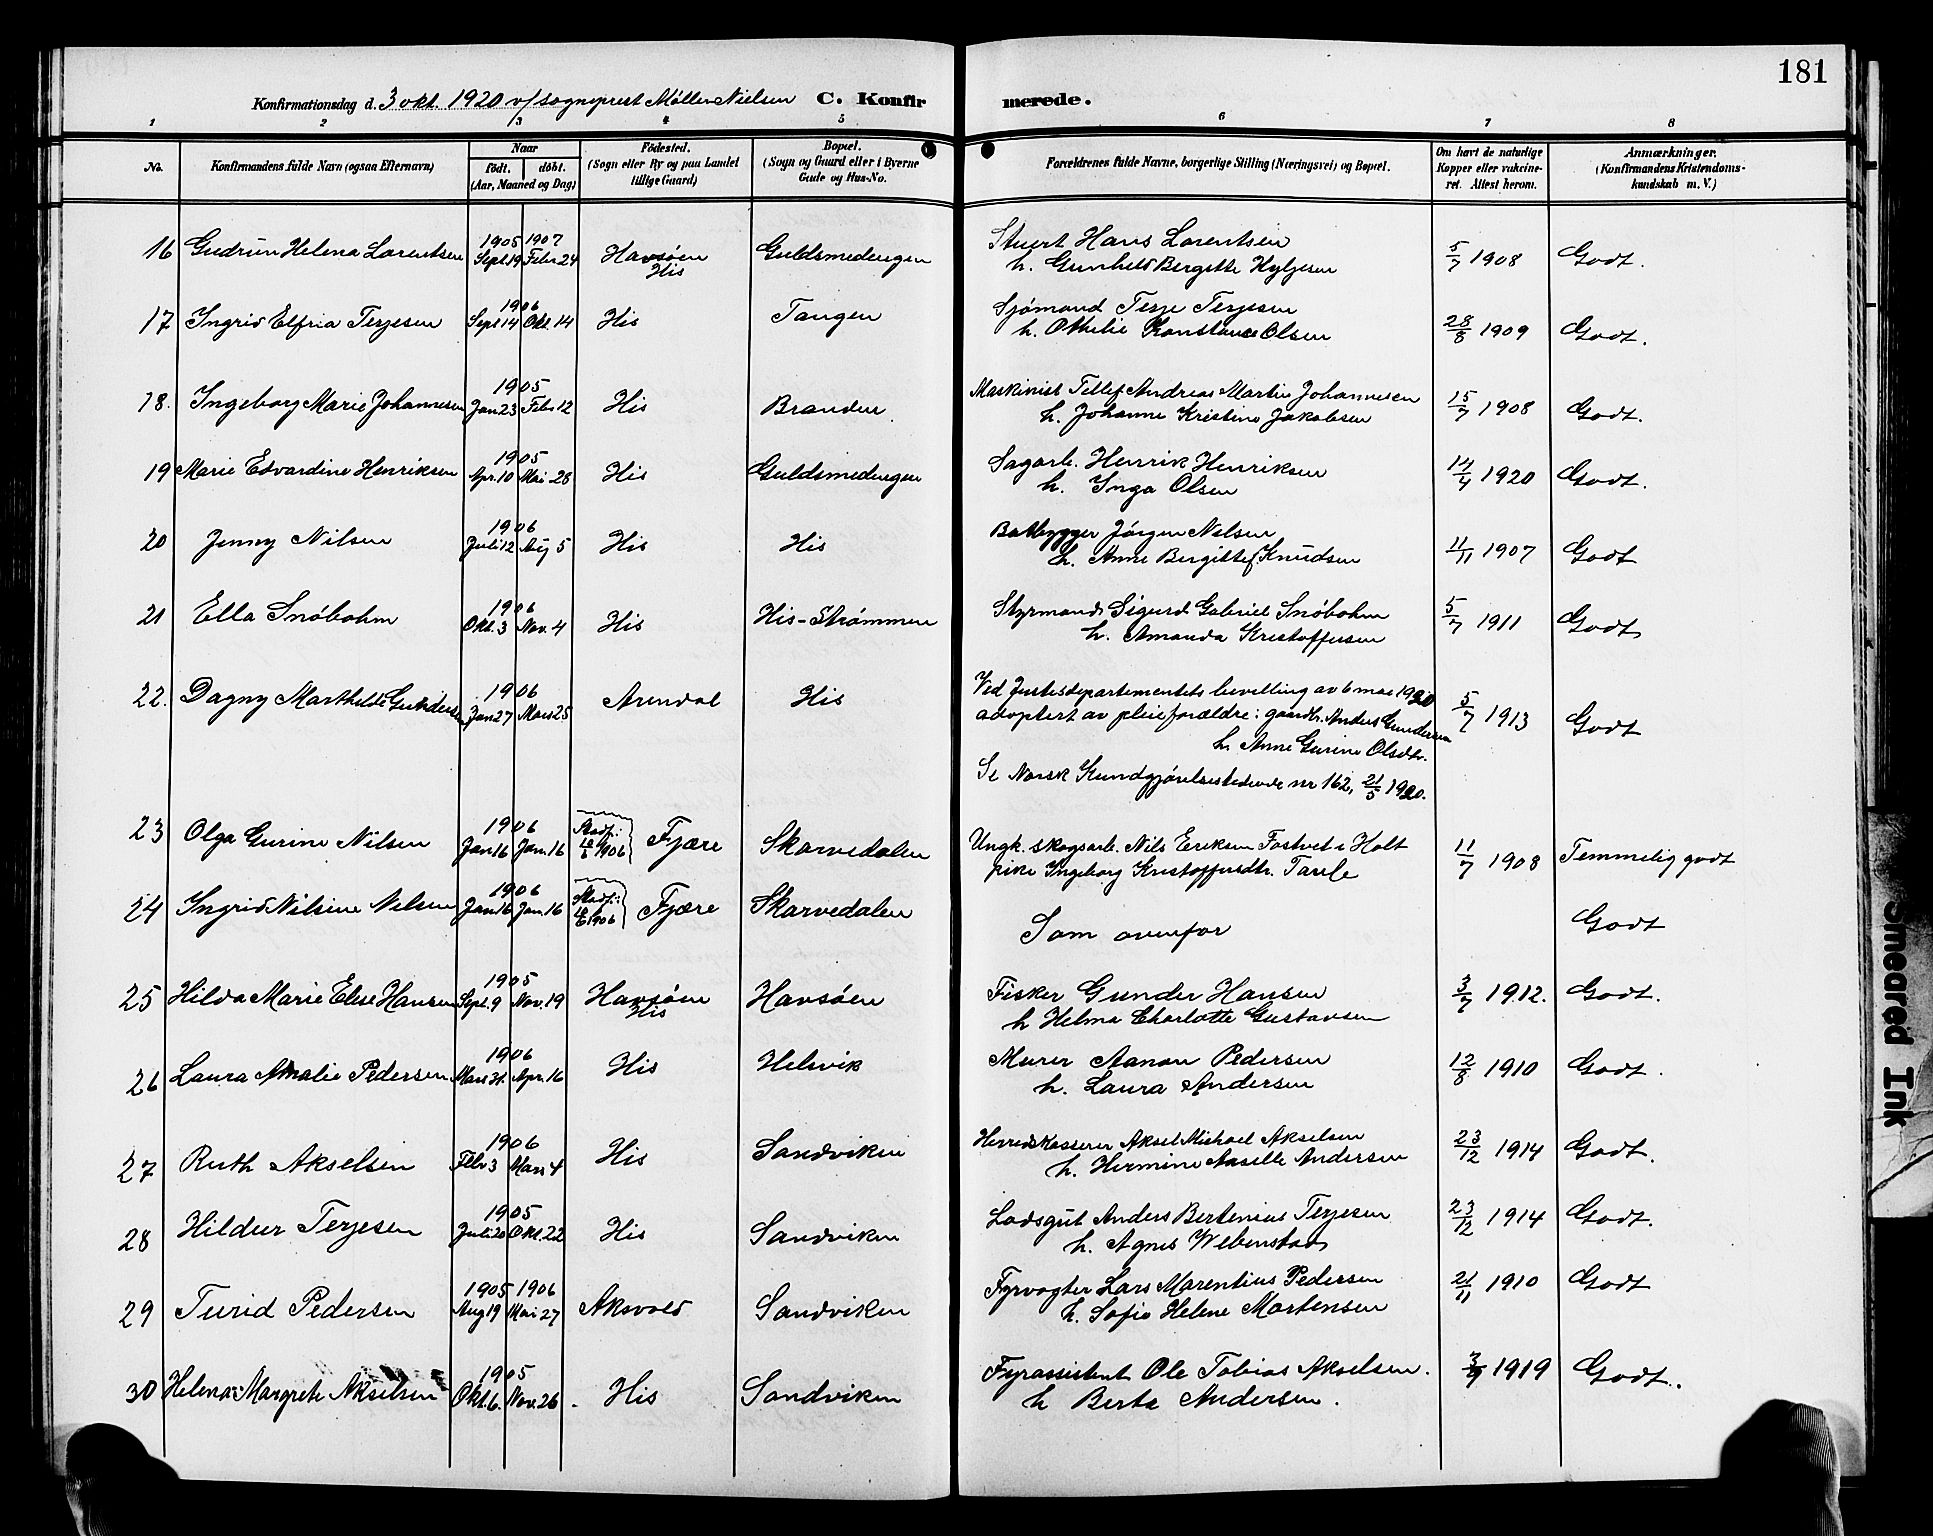 181
Konfirmationsdag d. 3 okt. 1920 v/ sogneprest Møller Nielsen C. Konfirmerede.
1 2 3 4 5 6 7 8
No. Konfirmandens fulde Navn (ogsaa Efternavn) Naar født. døbt. (Aar, Maaned og Dag) Fødested. (Sogn eller By og paa Landet tillige Gaard) Bopæl. (Sogn og Gaard eller i Byerne Gade og Hus-No. Forældrenes fulde Navne, borgerlige Stilling (Næringsvei) og Bopæl. Om havt de naturlige Kopper eller vakcineret. Attest herom. Anmærkninger. (Konfirmandens Kristendomskundskab m. V.)
16 Gudrun Helena Lorentsen 1905 Sept. 19 1907 Febr. 24 Havsøen His Guldsmedengen Stuert Hans Lorentsen 5/7 1908 Godt.
h. Gunhild Bergitte Kyljesen
17 Ingrid Elfria Terjesen 1906 Sept 14 Okt. 14 His Tangen Sjømand Terje Terjesen 28/8 1909 Godt.
h. Othilie Konstance Olsen
18. Ingeborg Marie Johannesen 1905 Jan 23 Febr 12 His Branden. Maskinist Tellef Andreas Martin Johannesen 15/7 1908 Godt.
h. Johanne Kristine Jakobsen
19 Marie Edvardine Henriksen 1905 Apr. 10 Mai 28 His Guldsmedengen Sagarb. Henrik Henriksen 14/4 1920 Godt.
h. Inga Olsen
20 Jenny Nilsen 1906 Juli 12 Aug 5 His His Baatbygger Jørgen Nilsen 11/11 1907 Godt
h. Anne Bergitte f. Knudsen
21 Ella Snøbohm 1906 Okt. 3 Nov. 4 His His-Strømmen Styrmand Sigurd Gabriel Snøbohm 5/7 1911 Godt
h. Amanda Kristoffersen
22. Dagny Marthilde Gundersen 1906 Jan 27 Mars 25 Arendal His Ved Justisdepartementets bevilling av 6 mai 1920 5/7 1913 Godt
adoptert av pleieforældre: gaardbr. Anders Gundersen
h. Anne Gurine Olsdtr.
Se Norsk Kundgjørelsestidende nr 162, 21/5 1920.
23 Olga Gurine Nilsen 1906 Jan 16 Jan. 16 Stadf.: 10/6 1906 Fjære Skarvedalen Ungk. skogsarb. Nils Eriksen Fostvet i Holt 11/7 1908 Temmelig godt
pike Ingeborg Kristoffersdtr.
24 Ingrid Nilsine Nilsen 1906 Jan 16 Jan. 16 Stadf.: 10/6 1906 Fjære Skarvedalen Som ovenfor Godt
25 Hilda Marie Elise Hansen 1905 Sept. 9 Nov. 19 Havsøen His Havsøen Fisker Gunder Hansen 3/7 1912. Godt.
h Helma Charlotte Gustavsen
26 Laura Amalie Pedersen 1906 Mars 21. Apr. 16 His Helsvik Murer Aanon Pedersen 12/8 1910 Godt.
h. Laura Andersen
27 Ruth Akselsen 1906 Febr 3 Mars 4 His Sandviken Herredskasserer Aksel Michael Akselsen 23/12 1914 Godt.
h. Hermine Andersen
28 Hildur Terjesen 1905 Juli 20 Okt. 22 His Sandviken Losgut Anders Bertenius Terjesen 23/12 1914 Godt.
h. Agnes Webenstad
29 Turid Pedersen 1905 Aug 19 1906 Mai 27 Aksvold Sandviken Fyrvogter Lars Marentius Pedersen 21/11 1910 Godt
h. Sofie Helene Mortensen
30 Helena Margrete Akselsen 1905 Okt. 6. Nov. 26 His Sandviken Fyrassistent Ole Tobias Akselsen. 3/9 1919 Godt.
h Berta Andersen.
Smeared Ink